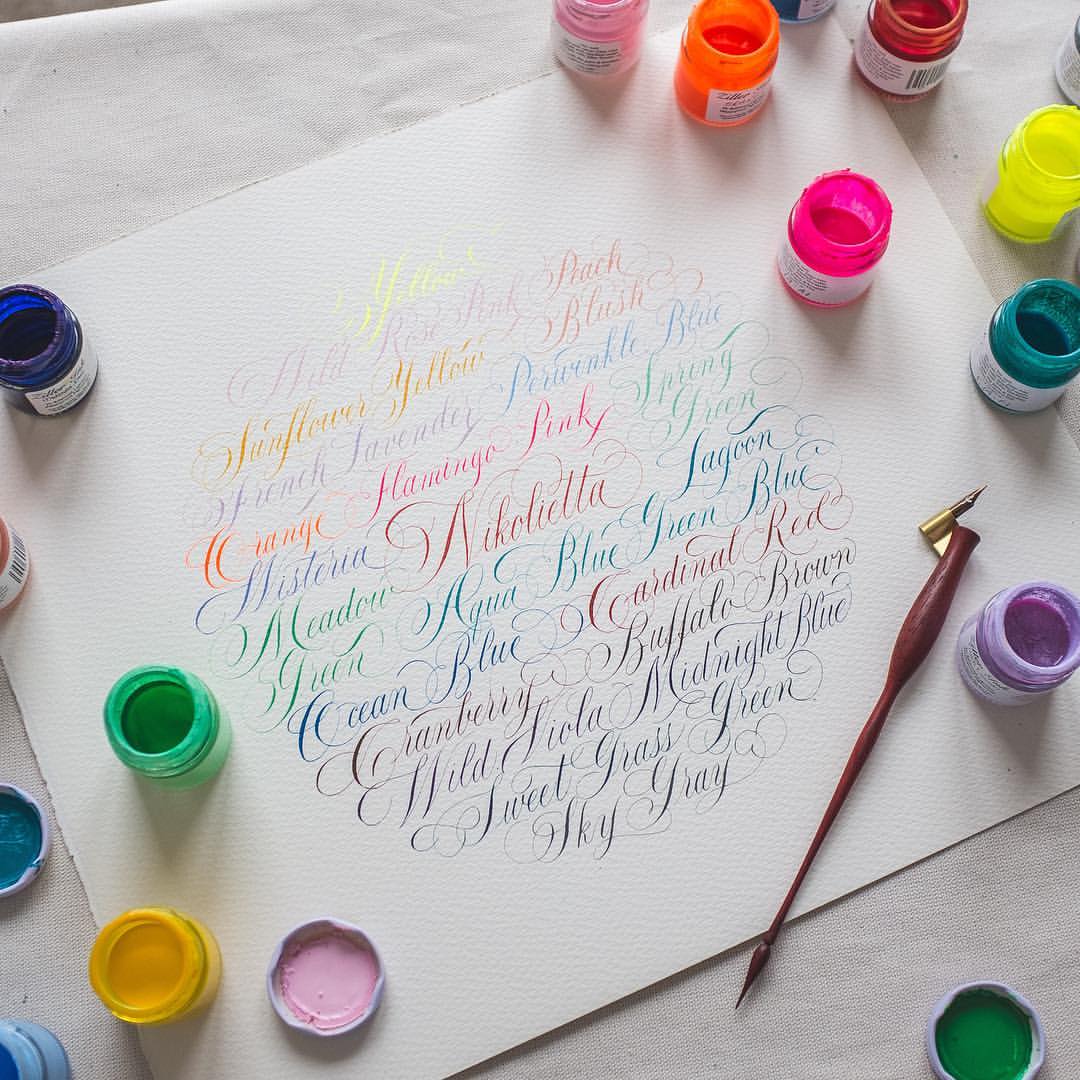 Yellow
Wild Rose Pink Peach
Sunflower Yellow Blush
French Lavender Periwinkle Blue
Orange Flamingo Pink Spring
Wisteria Nikolietta Green
Meadow Aqua Blue Green Lagoon
Green Blue
Ocean Blue Cardinal Red
Cranberry Buffalo Brown
Wild Viola Midnight Blue
Sweet Grass Green
Sky Gray
Ziller